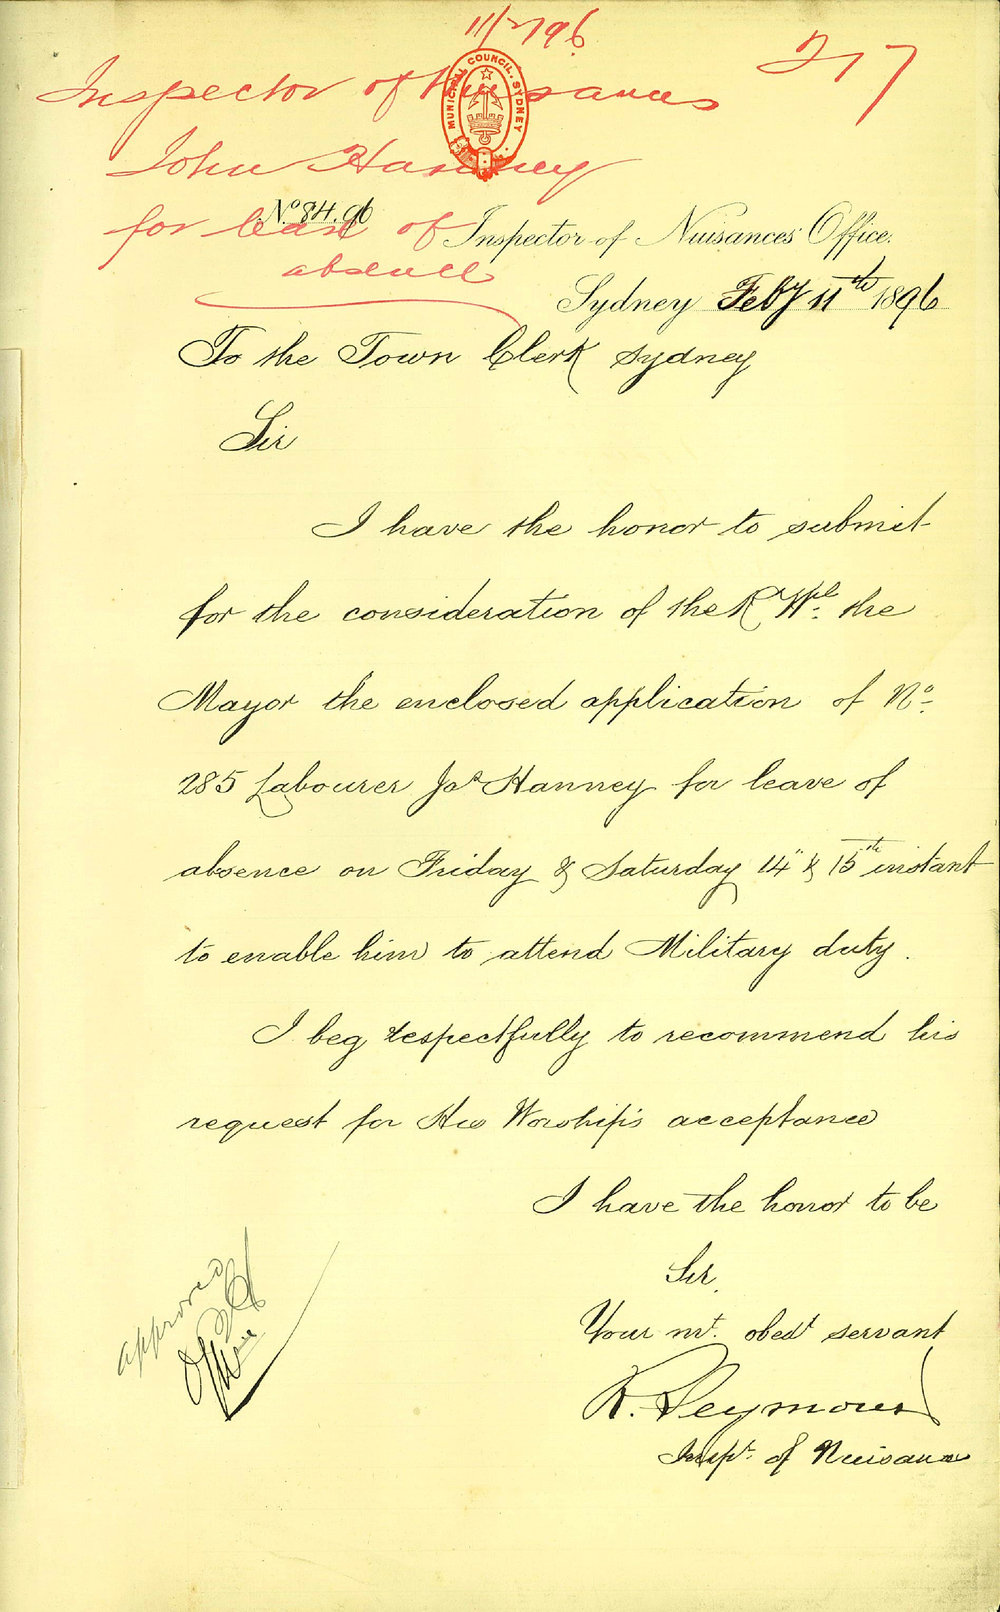 11/2/96
217
Inspector of Nuisances
MUNICIPAL COUNCIL. SYDNEY
John Hanney
for leave of
absence
No. 84.96
Inspector of Nuisances' Office.
Sydney Feby 11th 1896
To the Town Clerk Sydney
Sir
I have the honor to submit
for the consideration of the Rt. Wpl. the
Mayor the enclosed application of No.
285 Labourer Jos Hanney for leave of
absence on Friday & Saturday 14" & 15th instant
to enable him to attend Military duty.
I beg respectfully to recommend his
request for His Worship's acceptance
I have the honor to be
Sir,
Your mt. obedt servant
R. Seymour
Inspt. of Nuisance
approved